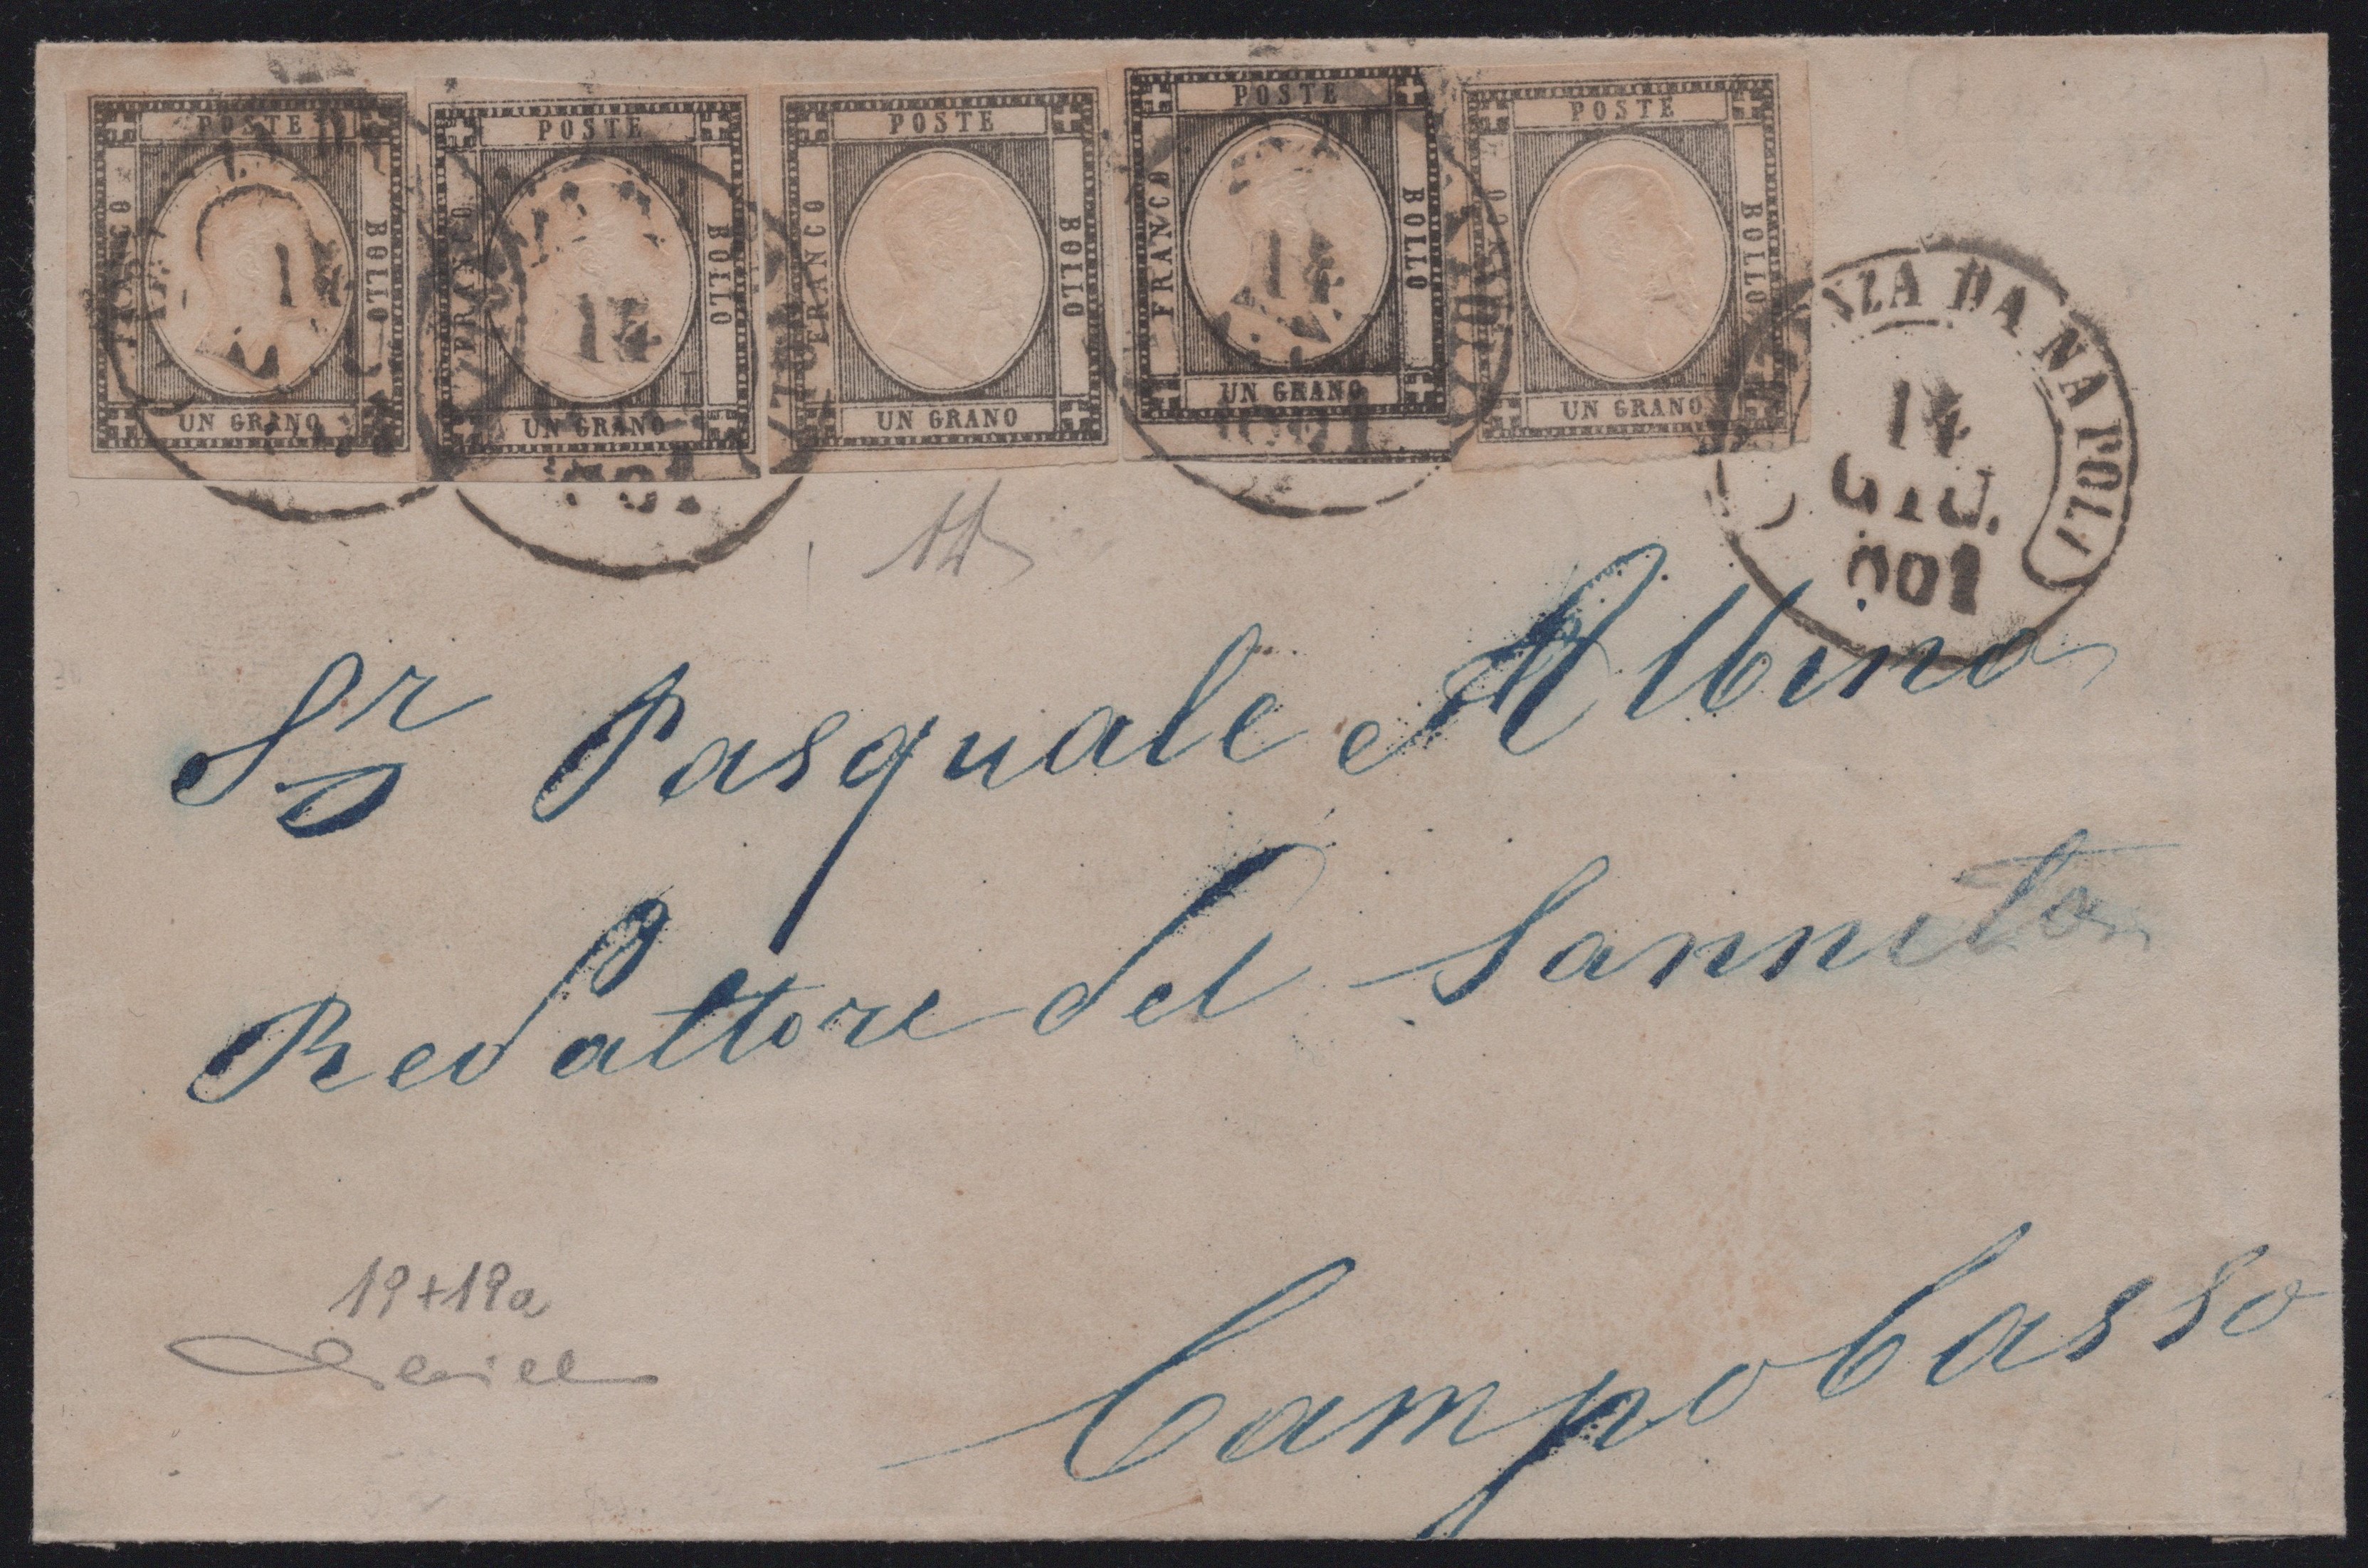 POSTE FRANCO BOLLO UN GRANO
POSTE FRANCO BOLLO UN GRANO
POSTE FRANCO BOLLO UN GRANO
POSTE FRANCO BOLLO UN GRANO
POSTE FRANCO BOLLO UN GRANO
NZA DA NAPOLI
14
GIU.
Sr Pasquale Albino
Redattore del Sannita
Campobasso
19+19a